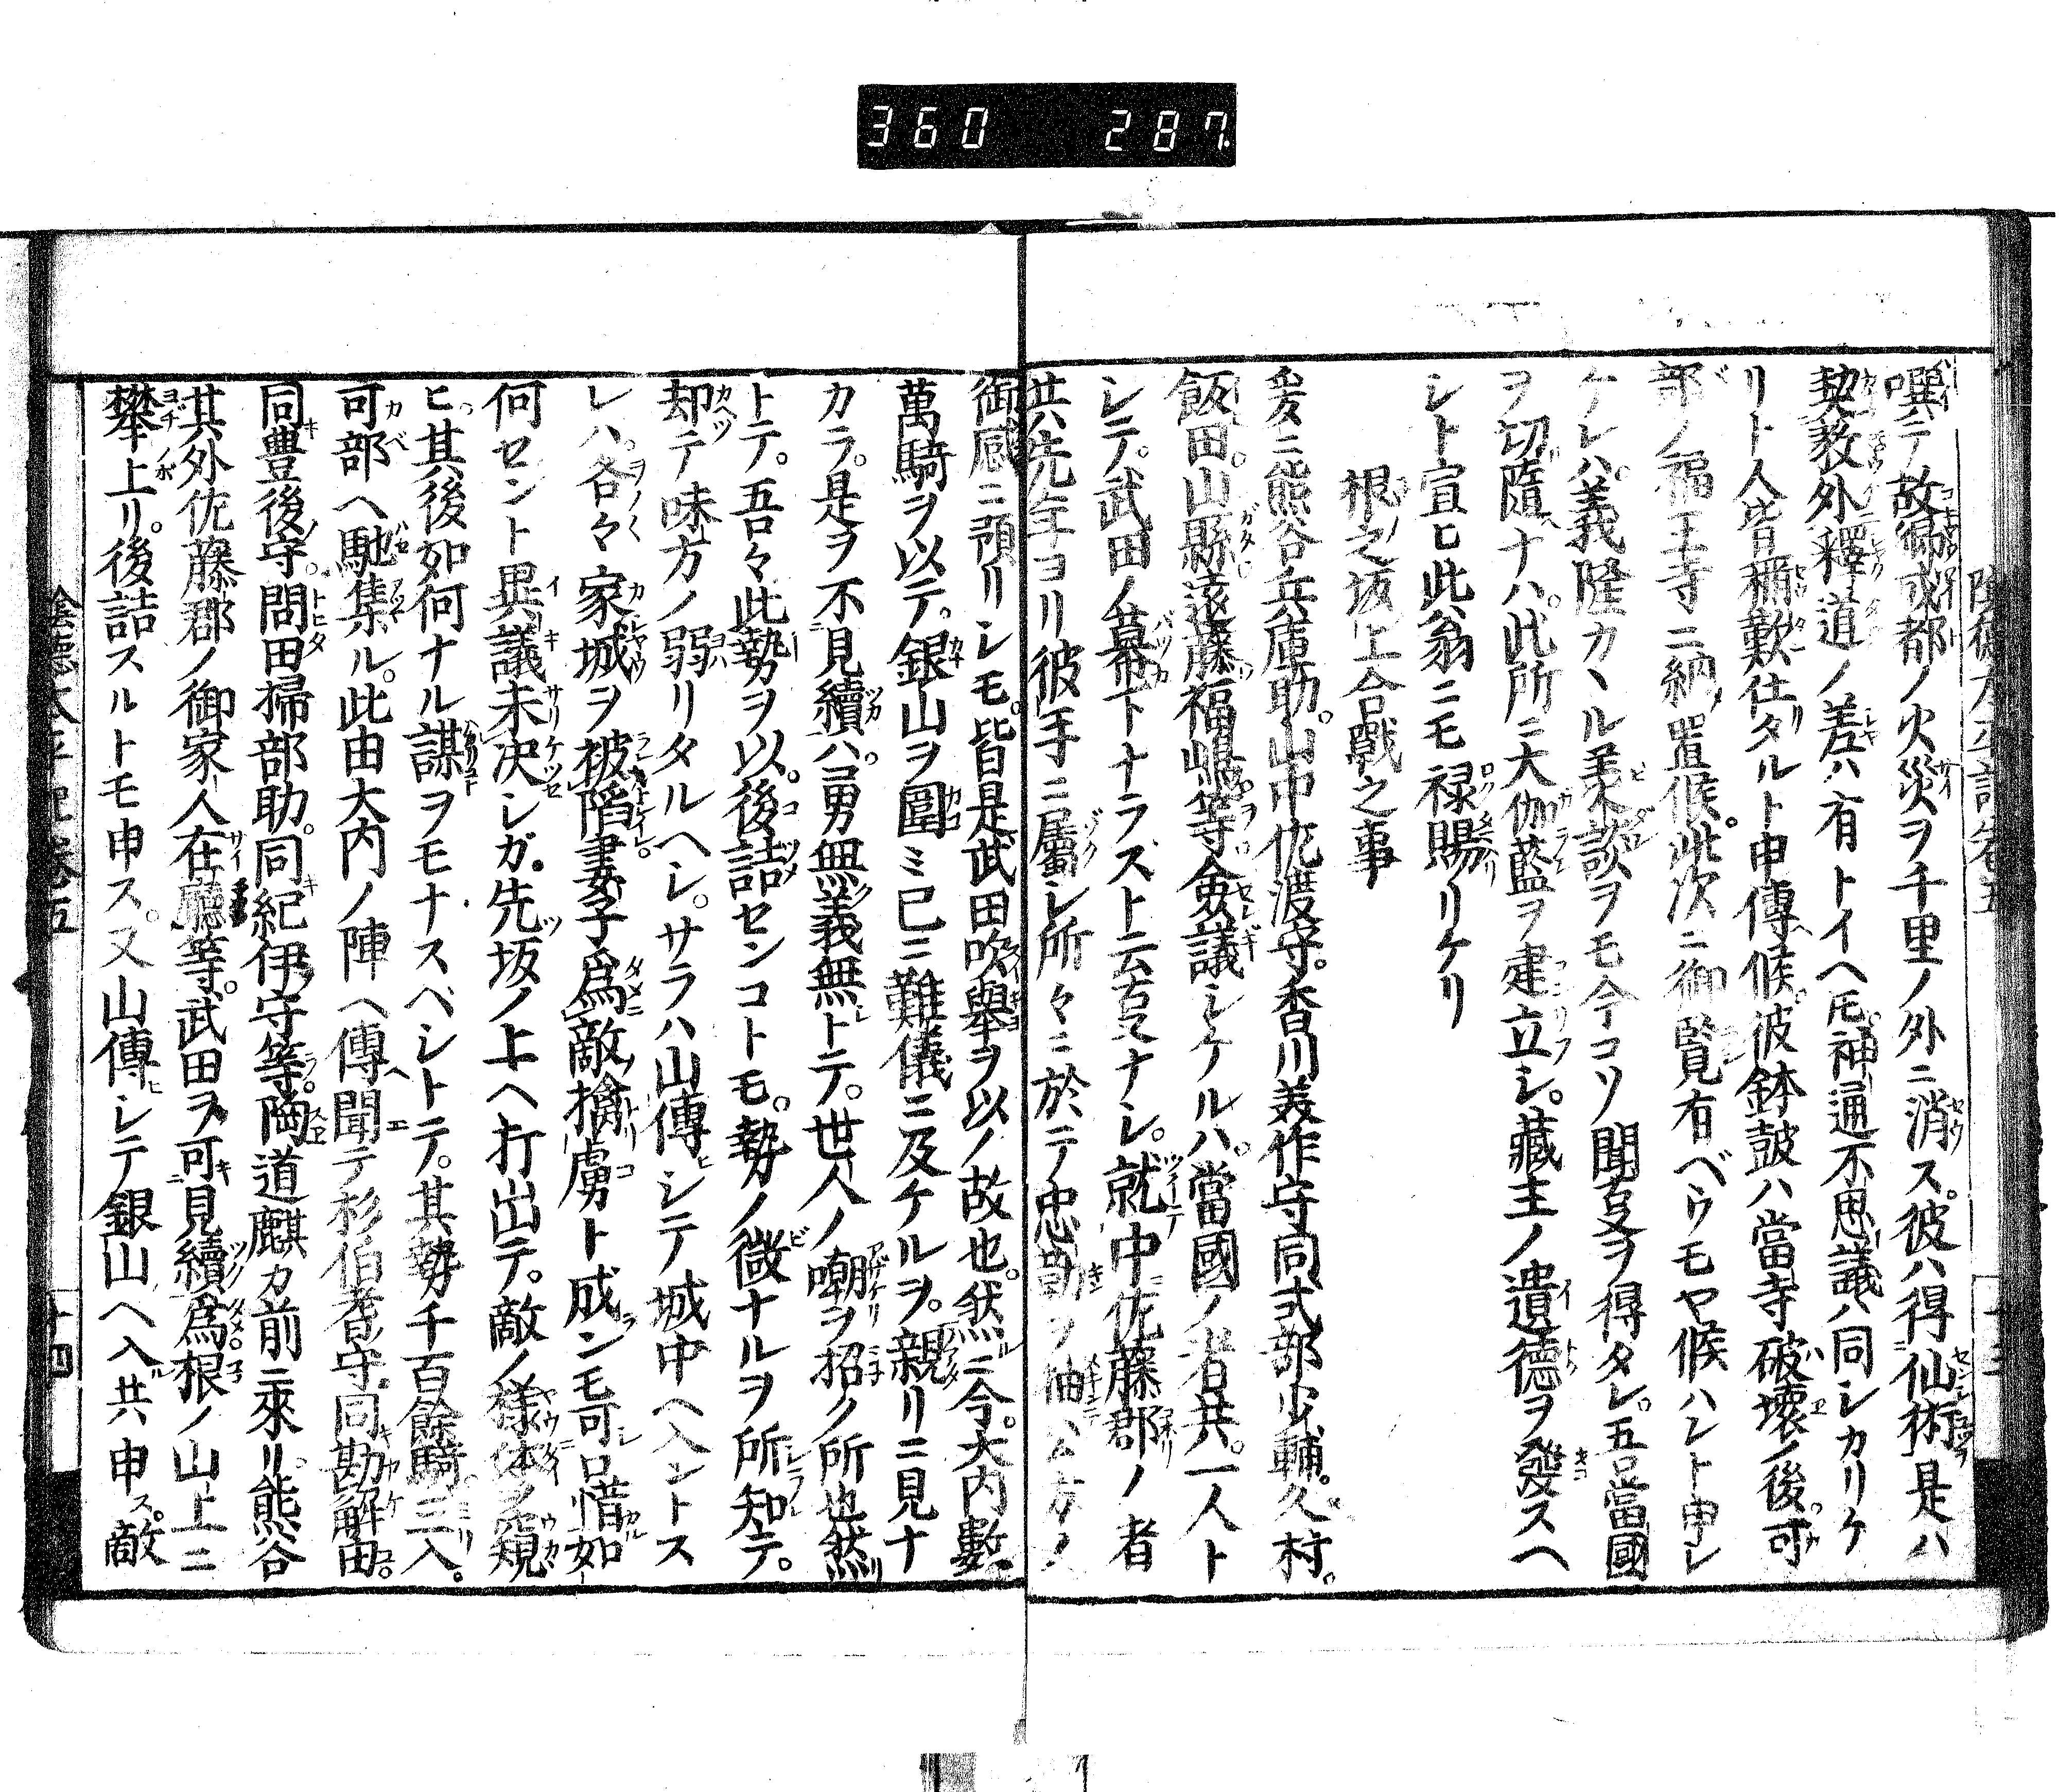 360 287.
陰徳太平記卷五
噀テ故郷或都ノ火災ヲ千里ノ外ニ消ス彼ハ得仙術是ハ
契教外釋道ノ差ハ有トイヘ𪜈神通不思議ハ同シカリケ
リト人皆稱歎仕タルト申傳候彼鉢皷ハ當寺破壞ノ後可
部ノ福王寺ニ納置候此次ニ御覧有ベウモヤ候ハント申シ
ケレハ義隆カヽル美談ヲモ今コソ聞叓ヲ得タレ吾當國
ヲ切隨ナハ此所ニ大伽藍ヲ建立シ藏主ノ遺德ヲ發スヘ
シト宣ヒ此翁ニモ禄賜リケリ
根之坂上合戰之事
爰ニ熊谷兵庫助山中佐渡守香川美作守同式部少輔久村
飯田山縣遠藤福嶋等僉議シケルハ當國ノ者共一人ト
シテ武田ノ幕下トナラスト云叓ナシ就中佐藤郡ノ者
共先年ヨリ彼手ニ屬シ所々ニ於テ忠勤ヲ抽公方ノ
御感ニ預リシモ皆是武田吹擧ヲ以ノ故也然ニ今大内數
萬騎ヲ以テ銀山ヲ圍ミ已ニ難儀ニ及ケルヲ親リニ見ナ
カラ是ヲ不見續ハ勇無義無トテ世人ノ嘲ヲ招ク所也然
トテ吾々此勢ヲ以後詰センコトモ勢ノ微ナルヲ所知テ
却テ味方ノ弱リタルヘシサラハ山傳シテ城中ヘ入ントス
レハ各々家城ヲ被陷妻子爲敵擒虜ト成ンモ可口惜如
何セント異議未決シガ先坂ノ上ヘ打出テ敵ノ様体ヲ窺
ヒ其後如何ナル謀ヲモナスベシトテ其勢千百餘騎三入
可部ヘ馳集ル此由大内ノ陣ヘ傳聞テ杉伯耆守同勘解由
同豊後守問田掃部助同紀伊守等陶道麒カ前ニ來リ熊谷
其外佐藤郡ノ御家人在廳等武田ヲ可見續爲根ノ山上ニ
攀上リ後詰スルトモ申ス又山傳シテ銀山ヘ入共申ス敵
陰德太平記卷五
十四